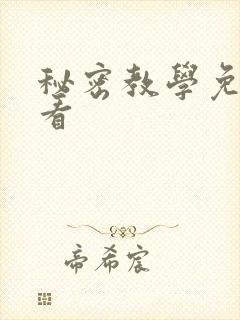 秘密教學免
看
帝希宸